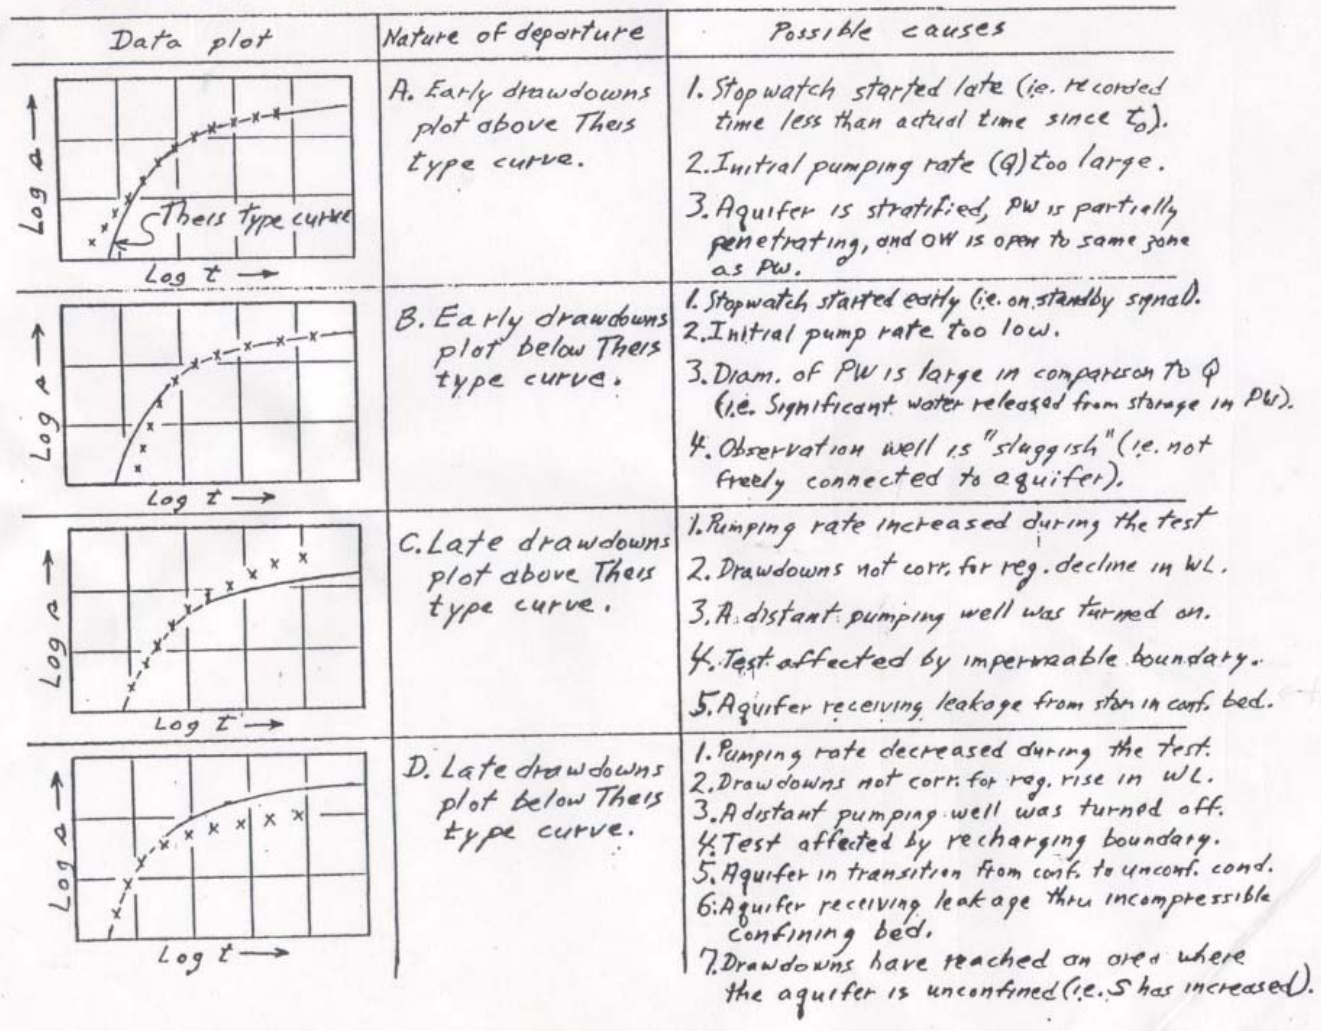 Data plot
Nature of departure
Possible causes
Log s →
Theis type curve
Log t →
A. Early drawdowns
plot above Theis
type curve.
1. Stopwatch started late (i.e. recorded
time less than actual time since t₀).
2. Initial pumping rate (Q) too large.
3. Aquifer is stratified, PW is partially
penetrating, and OW is open to same zone
as PW.
Log s →
Log t →
B. Early drawdowns
plot below Theis
type curve.
1. Stopwatch started early (i.e. on standby signal).
2. Initial pump rate too low.
3. Diam. of PW is large in comparison to Q
(i.e. Significant water released from storage in PW).
4. Observation well is "sluggish" (i.e. not
freely connected to aquifer).
Log s →
Log t →
C. Late drawdowns
plot above Theis
type curve.
1. Pumping rate increased during the test
2. Drawdowns not corr. for reg. decline in WL.
3. A distant pumping well was turned on.
4. Test affected by impermeable boundary.
5. Aquifer receiving leakage from stor in conf. bed.
Log s →
Log t →
D. Late drawdowns
plot below Theis
type curve.
1. Pumping rate decreased during the test.
2. Drawdowns not corr. for reg. rise in WL.
3. A distant pumping well was turned off.
4. Test affected by recharging boundary.
5. Aquifer in transition from conf. to unconf. cond.
6. Aquifer receiving leakage thru incompressible
confining bed.
7. Drawdowns have reached an area where
the aquifer is unconfined (i.e. S has increased).